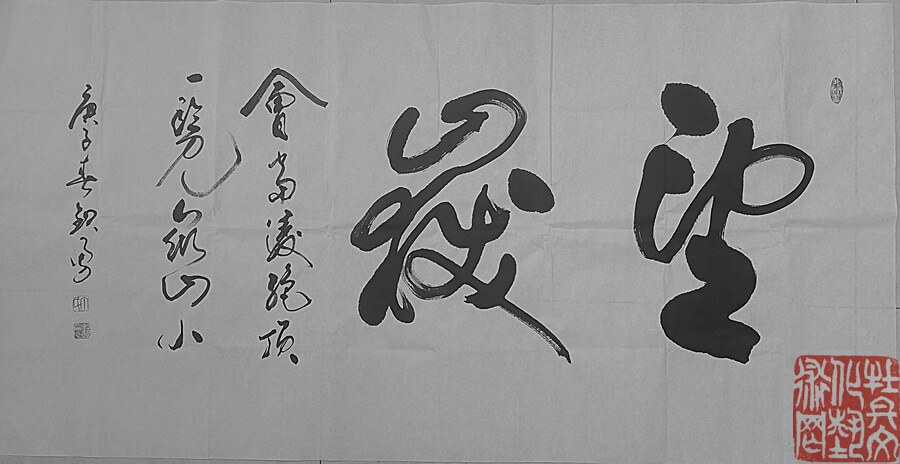 望嶽
會當凌絕頂
一覽眾山小
庚子春